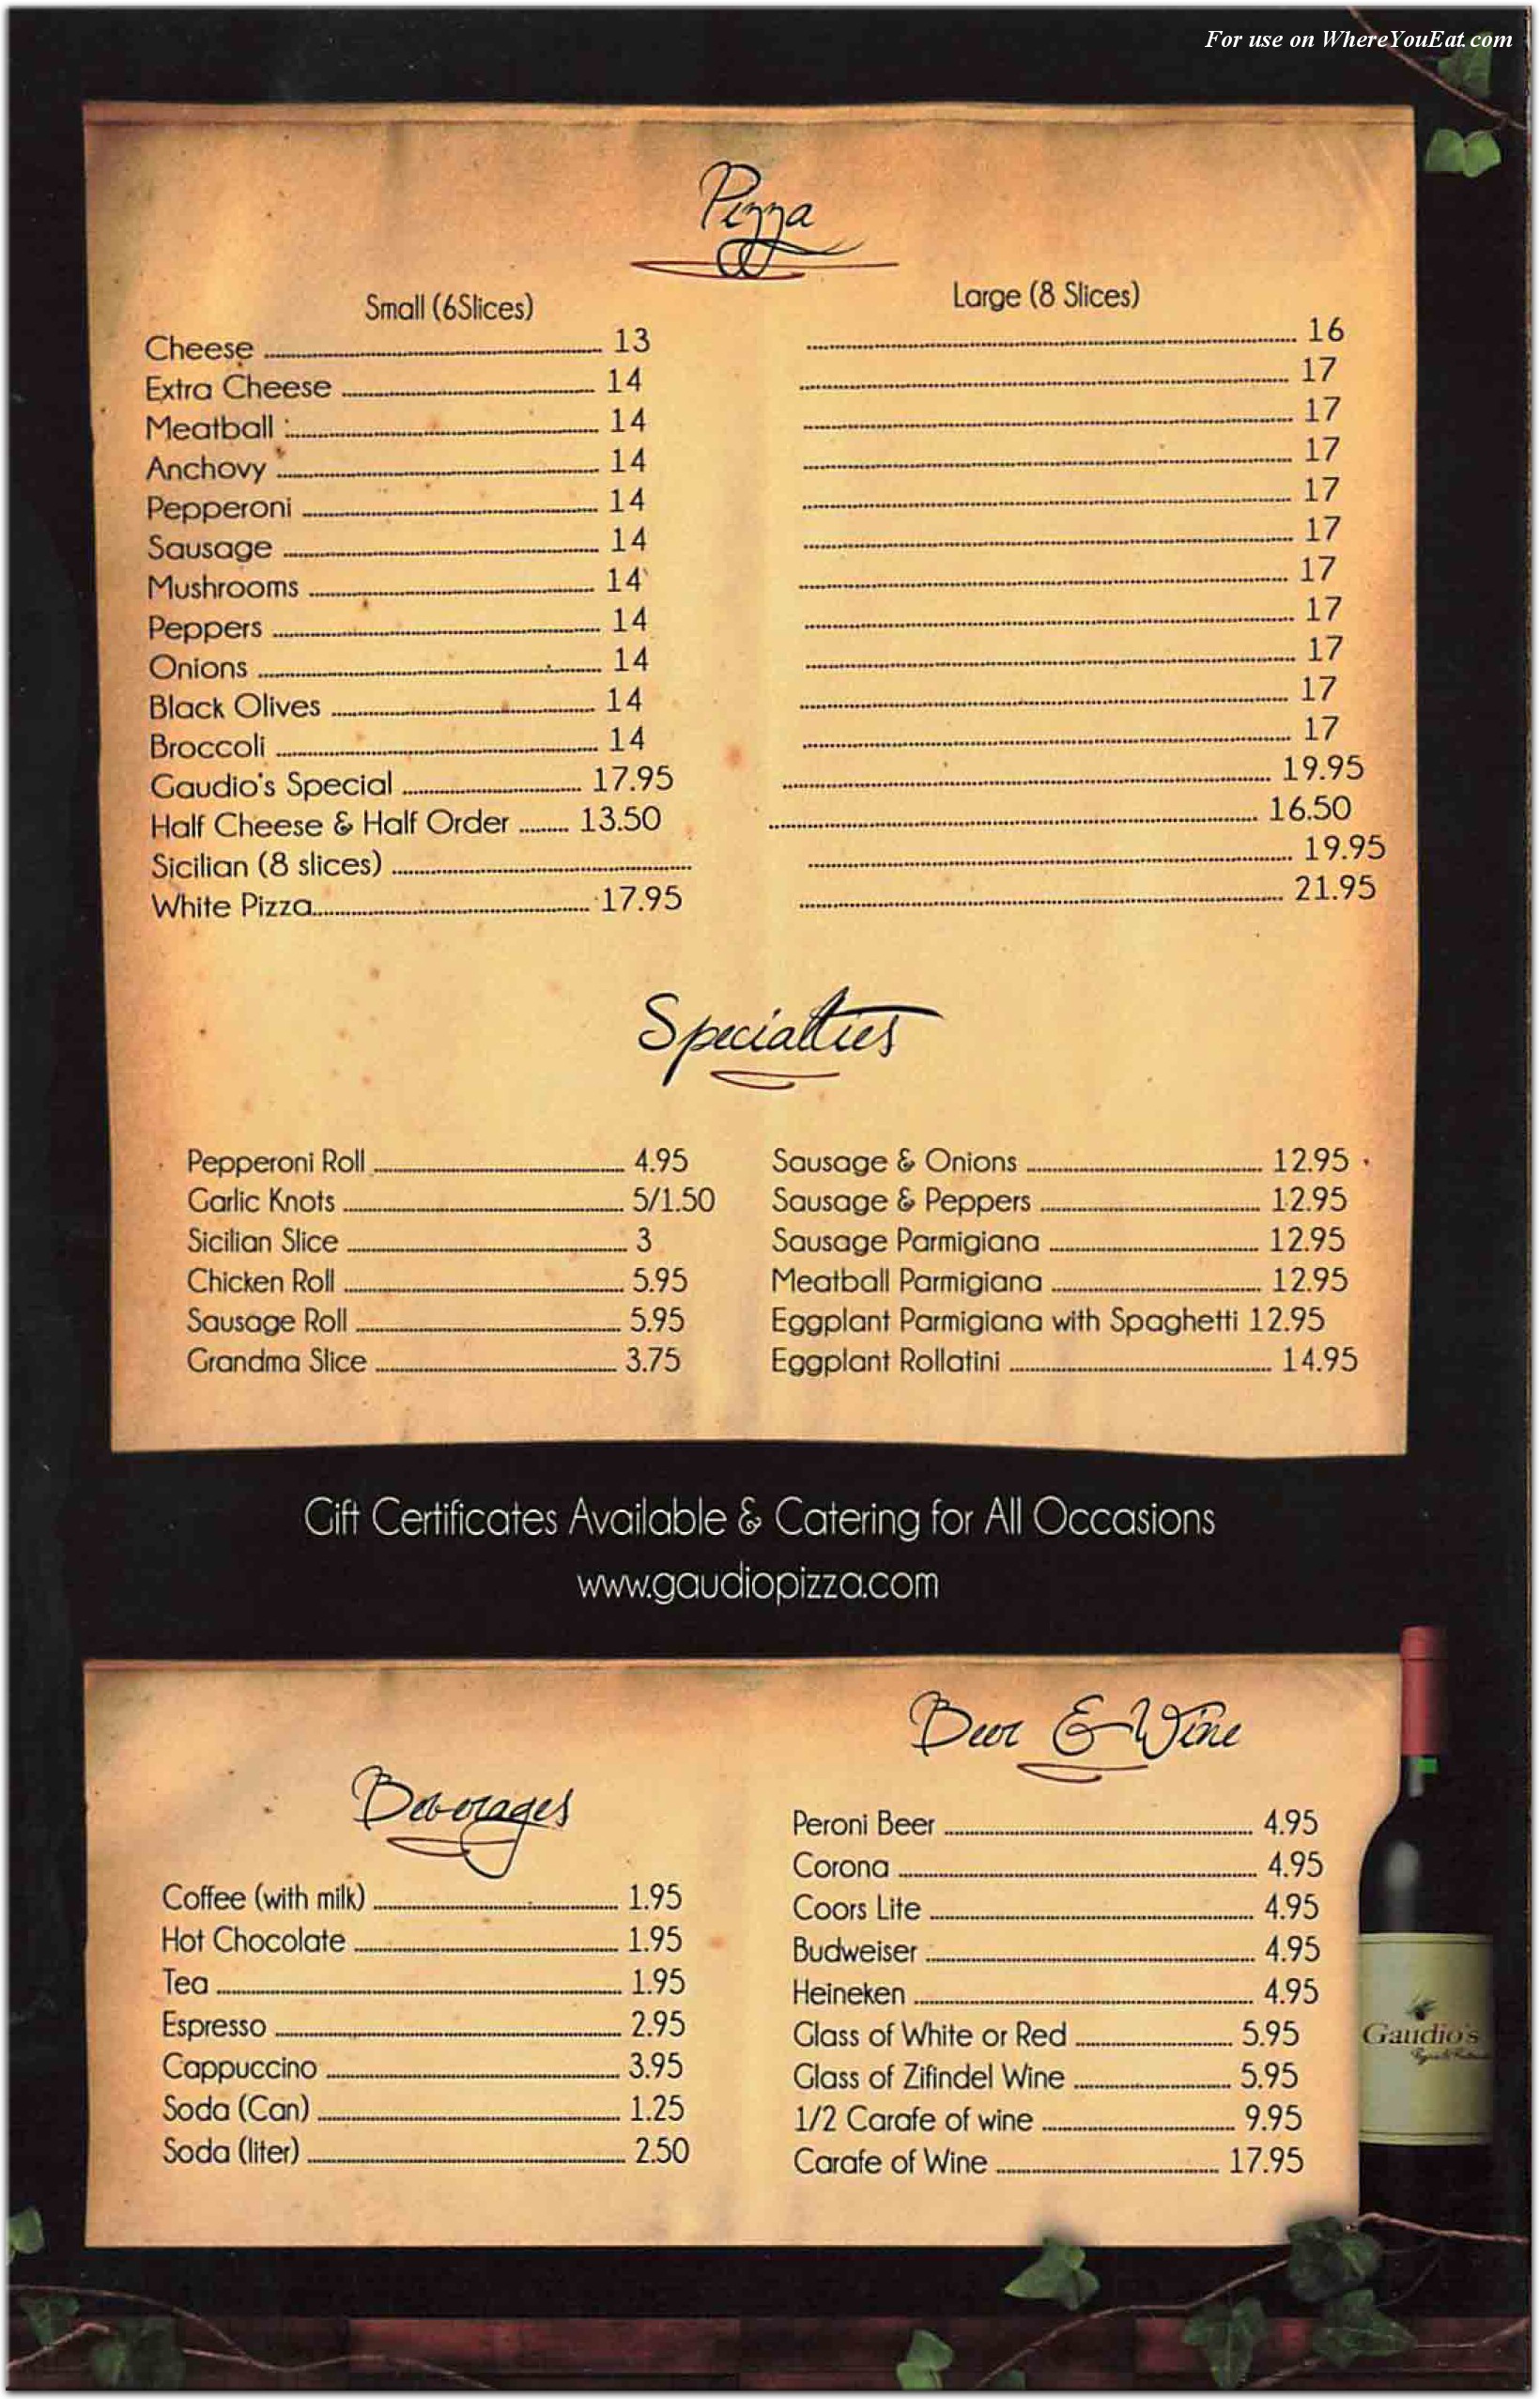 For use on WhereYouEat.com
Pizza
Small (6Slices) Large (8 Slices)
Cheese 13 16
Extra Cheese 14 17
Meatball 14 17
Anchovy 14 17
Pepperoni 14 17
Sausage 14 17
Mushrooms 14 17
Peppers 14 17
Onions 14 17
Black Olives 14 17
Broccoli 14 17
Gaudio's Special 17.95 19.95
Half Cheese & Half Order 13.50 16.50
Sicilian (8 slices) 19.95
White Pizza 17.95 21.95
Specialties
Pepperoni Roll 4.95
Garlic Knots 5/1.50
Sicilian Slice 3
Chicken Roll 5.95
Sausage Roll 5.95
Grandma Slice 3.75
Sausage & Onions 12.95
Sausage & Peppers 12.95
Sausage Parmigiana 12.95
Meatball Parmigiana 12.95
Eggplant Parmigiana with Spaghetti 12.95
Eggplant Rollatini 14.95
Gift Certificates Available & Catering for All Occasions
www.gaudiopizza.com
Beverages
Coffee (with milk) 1.95
Hot Chocolate 1.95
Tea 1.95
Espresso 2.95
Cappuccino 3.95
Soda (Can) 1.25
Soda (liter) 2.50
Beer & Wine
Peroni Beer 4.95
Corona 4.95
Coors Lite 4.95
Budweiser 4.95
Heineken 4.95
Glass of White or Red 5.95
Glass of Zifindel Wine 5.95
1/2 Carafe of wine 9.95
Carafe of Wine 17.95
Gaudio's